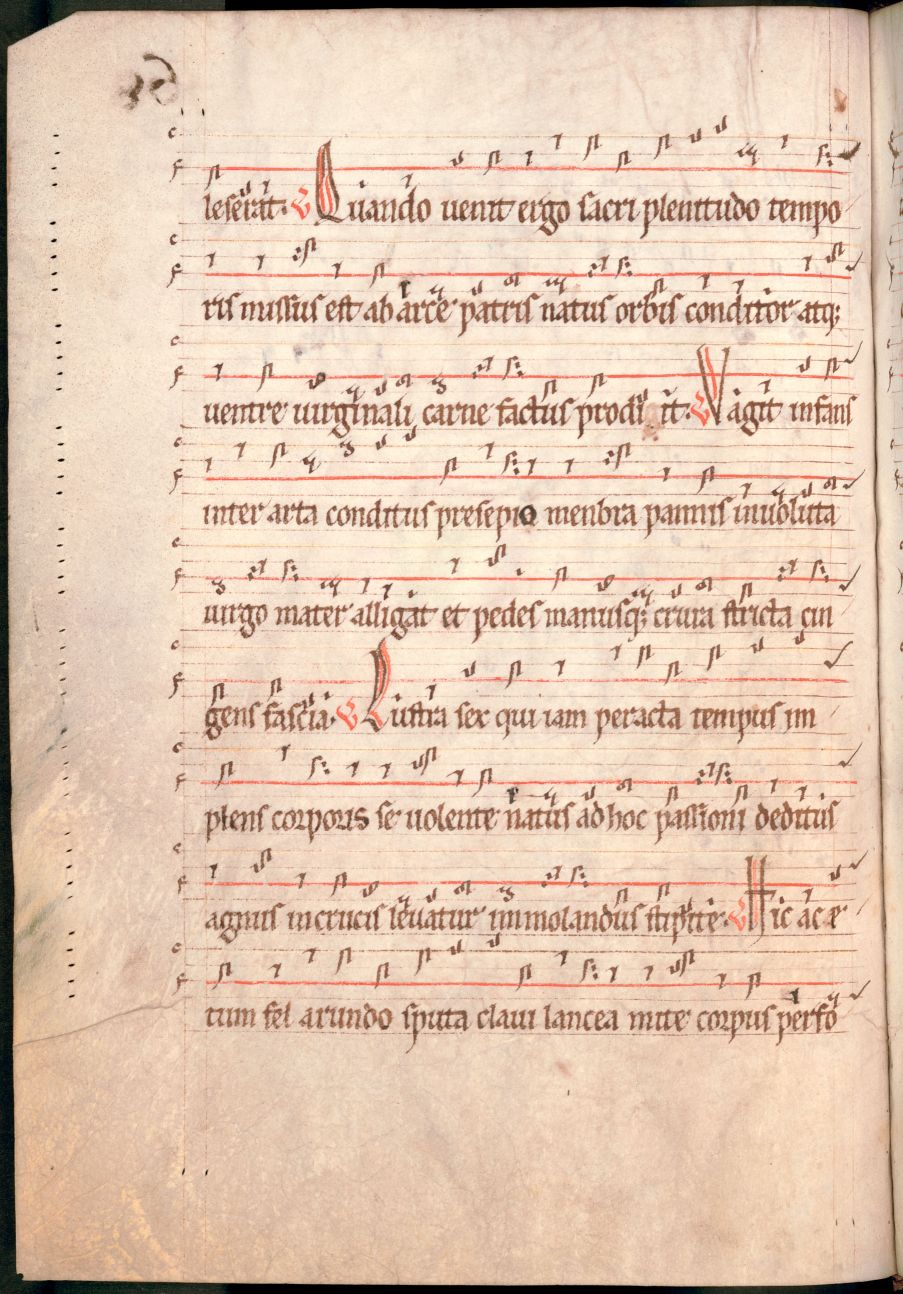 leserat. Quando uenit ergo sacri plenitudo tempo
ris missus est ab arce patris natus orbis conditor atq;
uentre uirginali carne factus prodi it. Vagit infans
inter arta conditus presepio menbra pannis inuoluta
uirgo mater alligat et pedes manusq; crura stricta cin
gens fascia. Lustra sex qui iam peracta tempus im
plens corporis se uolente natus ad hoc passioni deditus
agnus in crucis leuatur immolandus stipite. Hic ac e
tum fel arundo sputa claui lancea mite corpus perfo